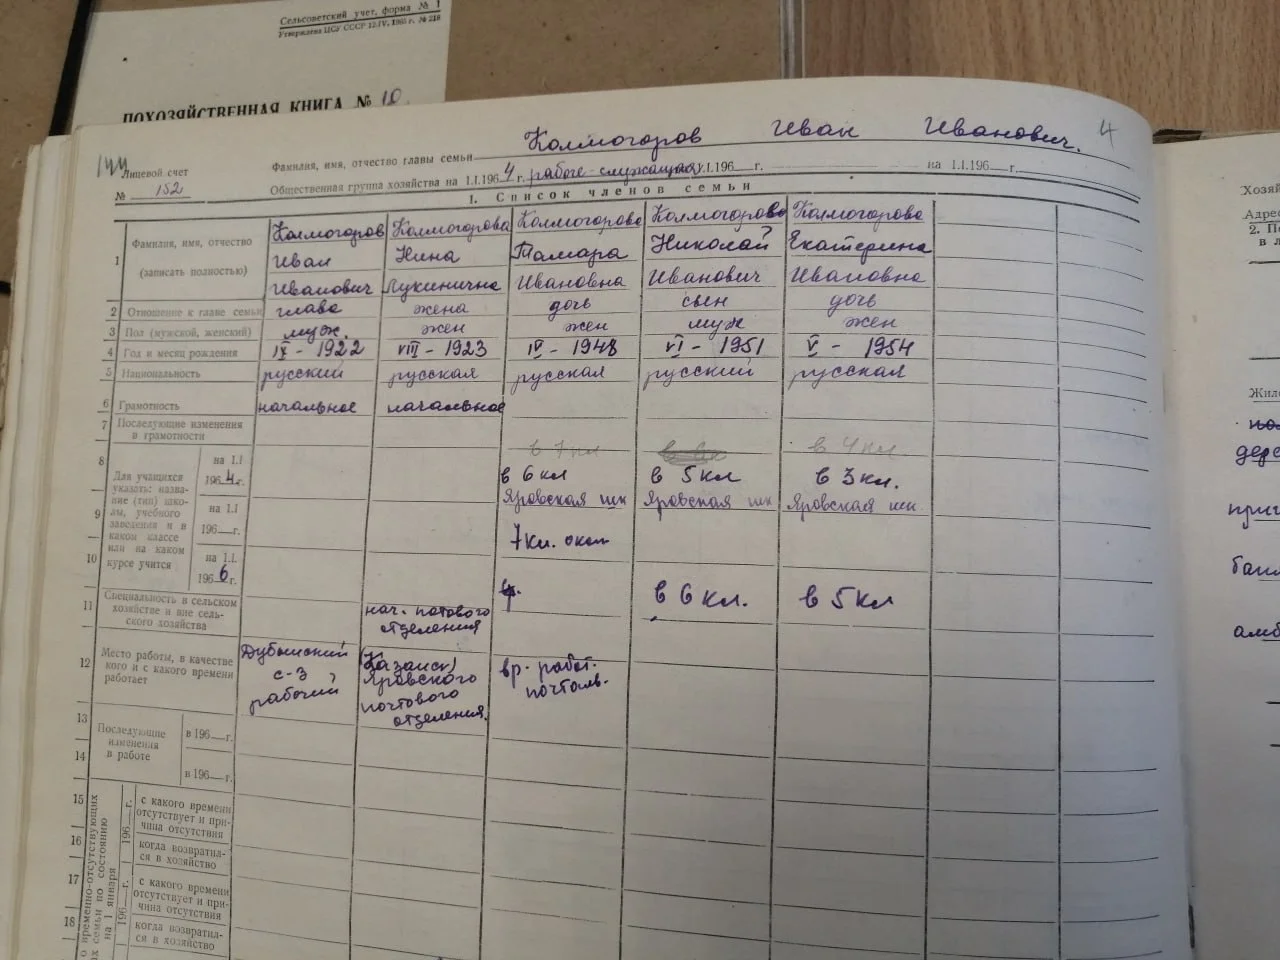 Сельсоветский учет, форма № 1
Утверждена ЦСУ СССР 12/IV. 1963 г. № 218
ПОХОЗЯЙСТВЕННАЯ КНИГА № 10
4
144
Лицевой счет
№ 152
Фамилия, имя, отчество главы семьи Колмогоров Иван Иванович.
Общественная группа хозяйства на 1.I.1964 г. рабоче-служащая 1.I.196 г. на 1.I.196 г.
1. Список членов семьи
1 Фамилия, имя, отчество (записать полностью)
Колмогоров Иван Иванович
Колмогорова Нина Лукинична
Колмогорова Тамара Ивановна
Колмогоров Николай Иванович
Колмогорова Екатерина Ивановна
2 Отношение к главе семьи глава жена дочь сын дочь
3 Пол (мужской, женский) муж. жен жен муж жен
4 Год и месяц рождения IX - 1922 VIII - 1923 IV - 1948 VI - 1951 V - 1954
5 Национальность русский русская русская русский русская
6 Грамотность начальное начальное
7 Последующие изменения в грамотности
в 7 кл в 4 кл
8 Для учащихся указать: название (тип) школы, учебного заведения и в каком классе или на каком курсе учится
на 1.I 1964 г. в 6 кл в 5 кл в 3 кл.
Яровская шк Яровская шк Яровская шк
9 на 1.I 196 г. 7 кл. окон
10 на 1.I. 1966 г. в 6 кл. в 5 кл
11 Специальность в сельском хозяйстве и вне сельского хозяйства
нач. почтового отделения
12 Место работы, в качестве кого и с какого времени работает
Дубынский с-з рабочий
Яровского почтового отделения.
вр. работ. почтальо.
13 Последующие изменения в работе в 196 г.
14 в 196 г.
15 с какого времени отсутствует и причина отсутствия
16 когда возвратился в хозяйство
17 с какого времени отсутствует и причина отсутствия
18 когда возвратился в хозяйство
временно-отсутствующих
семьи по состоянию
на 1 января
196 г.
196 г.
Хозяй
Адрес
2. По
в л
Жило